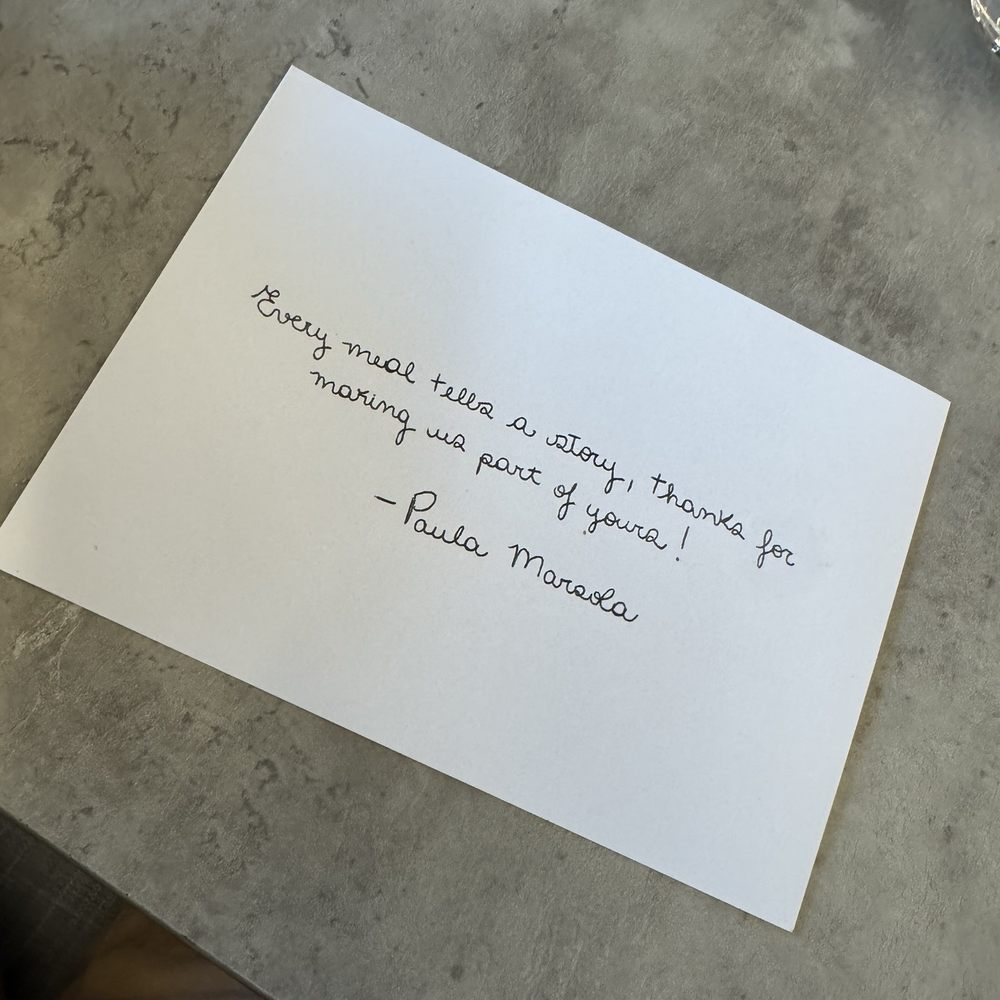 Every meal tells a story, thanks for
making us part of yours!
-Paula Marsola